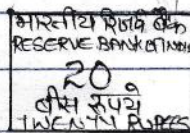 भारतीय रिजर्व बैंक
RESERVE BANK OF INDIA
20
बीस रुपये
TWENTY RUPEES